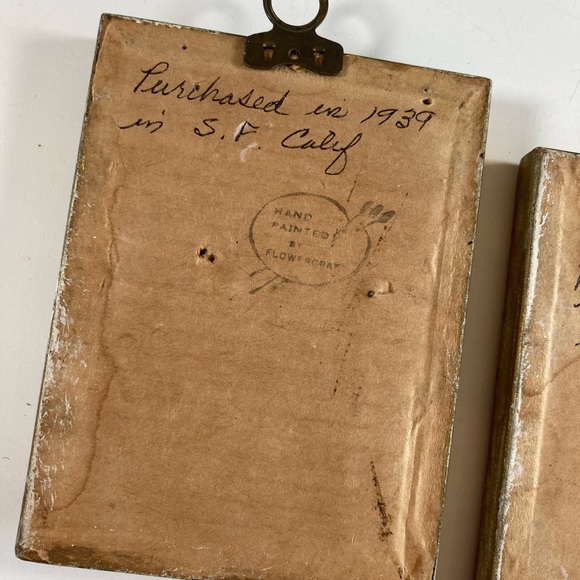 Purchased in 1939
in S.F. Calif
HAND
PAINTED
BY
FLOWERCRAFT